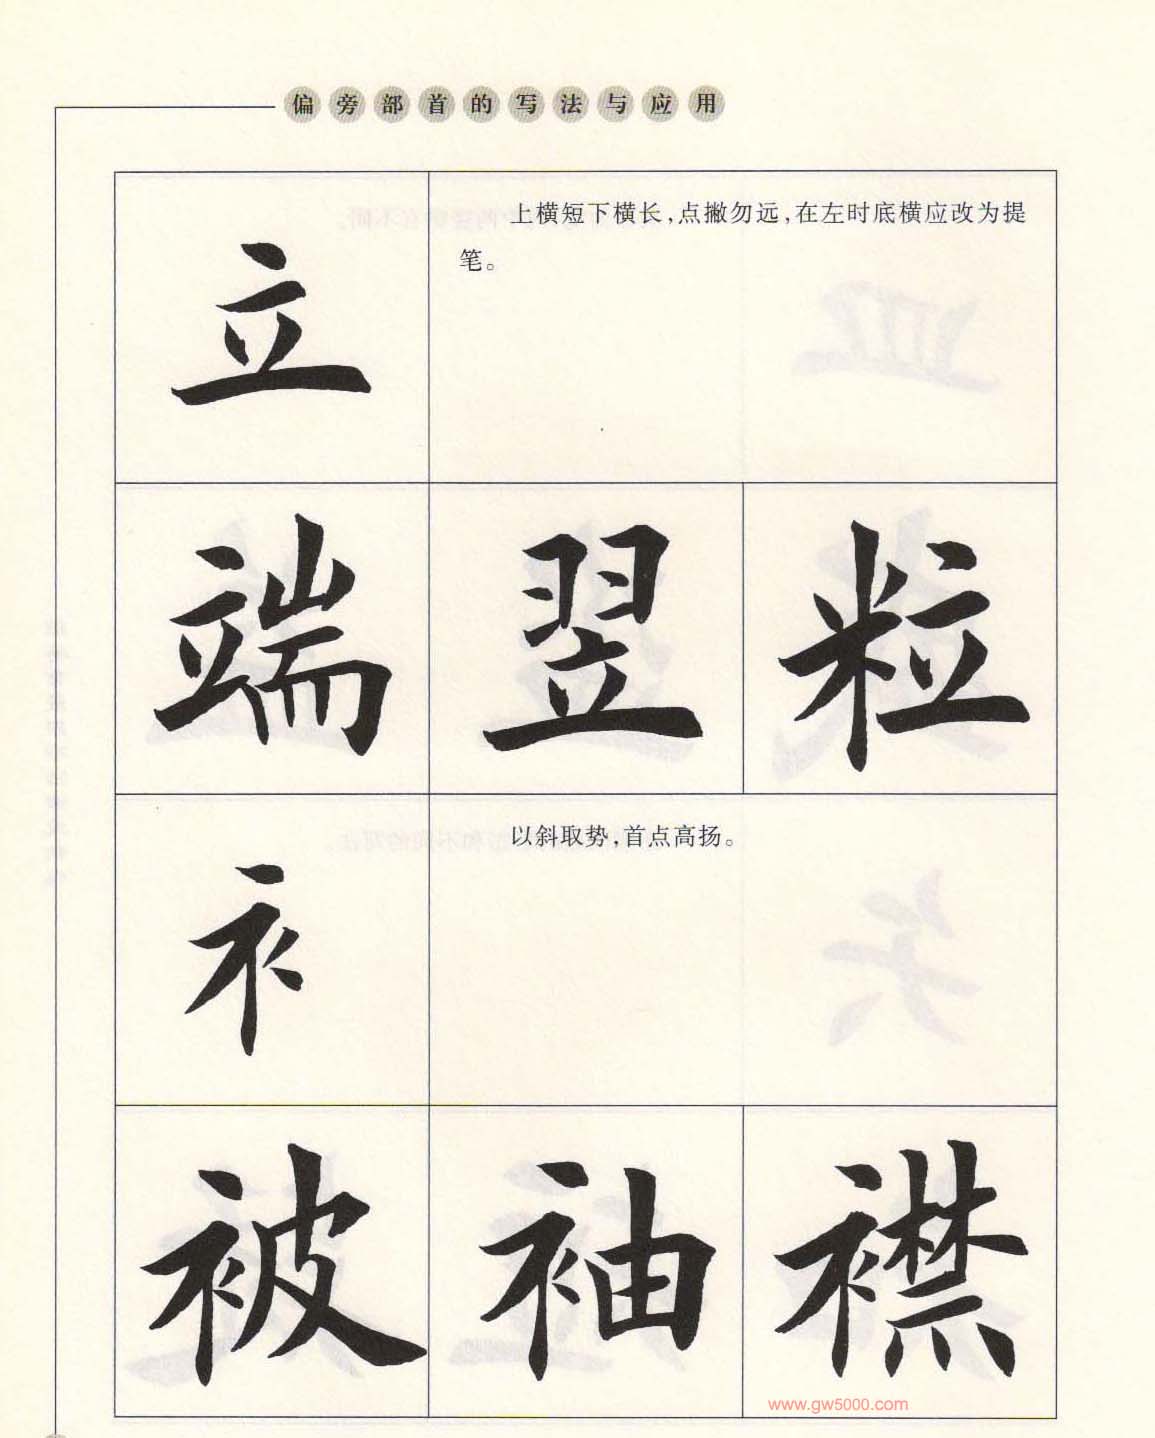 偏旁部首的写法与应用
立
上横短下横长,点撇勿远,在左时底横应改为提
笔。
端 翌 粒
衤
以斜取势,首点高扬。
被 袖 襟
www.gw5000.com